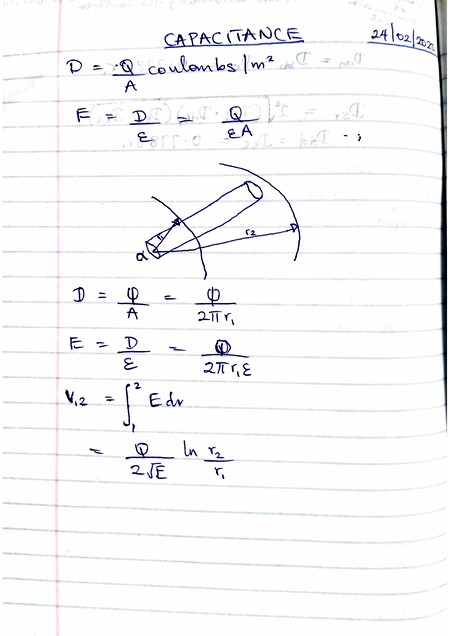 CAPACITANCE 24/02/202
D = Q/A coulombs/m²
E = D/ε = Q/εA
r₂
d
D = φ/A = φ/2πr₁
E = D/ε = Q/2πr₁ε
V₁₂ = ∫₁² E dr
= Q/2√E ln r₂/r₁